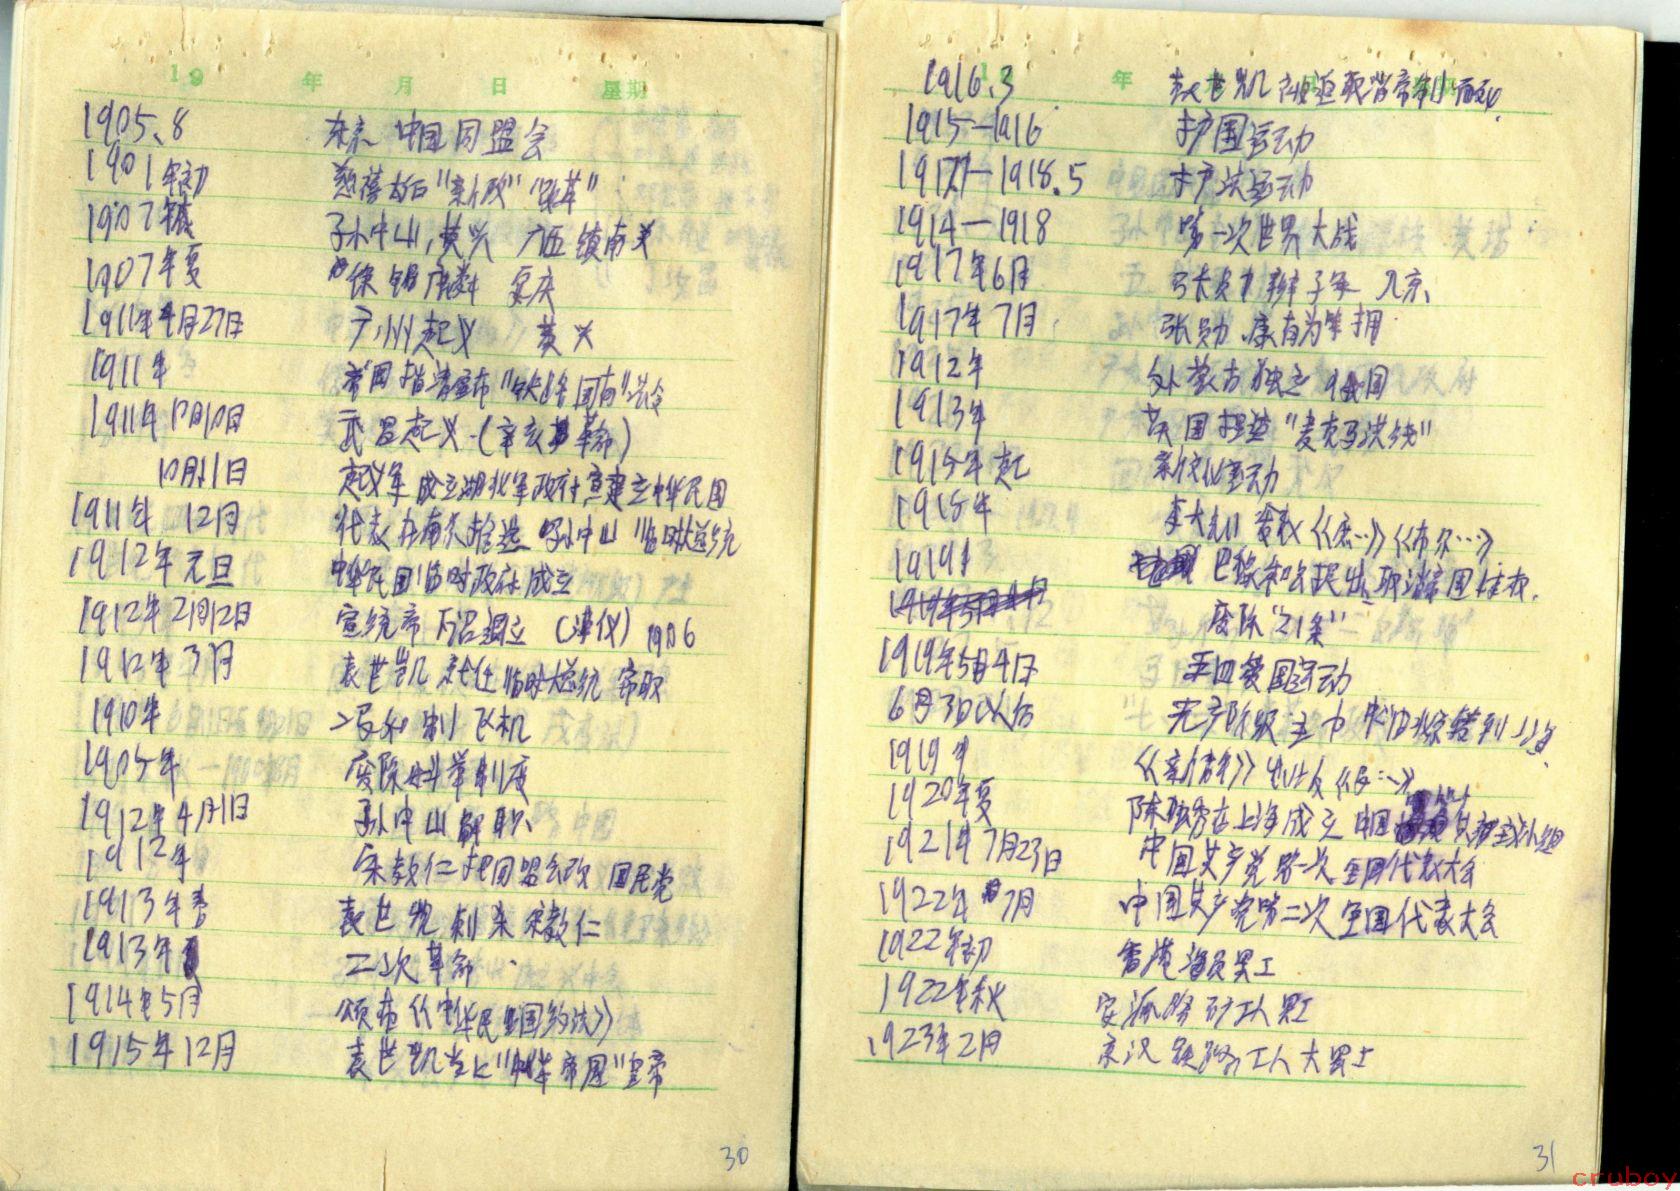 19 年 月 日 星期
1905.8 东京 中国同盟会
1901年初 慈禧 "新政" "改革"
1907年 孙中山,黄兴 广西镇南关
1907年夏 徐锡麟 安庆
1911年4月27日 广州起义 黄兴
1911年 帝国 清宣布"铁路国有"
1911年10月10日 武昌起义.(辛亥革命)
10月11日 起义军成立湖北军政府 宣建立中华民国
1911年 12月 代表在南京推选 孙中山 临时大总统
1912年元旦 中华民国临时政府成立
1912年2月12日 宣统帝下诏退位 (溥仪) 1906
1912年3月 袁世凯就任临时大总统 窃取
1910年 冯如制飞机
1905年 废除科举制度
1912年4月1日 孙中山解职
1912年 宋教仁把同盟会改国民党
1913年春 袁世凯刺杀宋教仁
1913年 二次革命
1914年5月 颁布《中华民国约法》
1915年12月 袁世凯当上"中华帝国"皇帝
30
年
1916.3 袁世凯被迫取消帝制
1915—1916 护国运动
1917.7—1918.5 护法运动
1914—1918 第一次世界大战
1917年6月 张 辫子军 入京
1917年7月 张勋、康有为等拥
1912年 外蒙古独立 俄国
1913年 英国 "麦克马洪线"
1915年起 新文化运动
1918年 李大钊 发表《庶…》《布尔…》
1919 巴黎和会提出取消帝国 权.
废除"21条"
1919年5月4日 五四爱国运动
6月3日以后 无产阶级主力 中心北京移到上海.
1919年 《新青年》
1920年夏 陈独秀在上海成立中国 小组
1921年7月23日 中国共产党第一次全国代表大会
1922年7月 中国共产党第二次全国代表大会
1922年初 香港海员罢工
1922年秋 安源路矿工人罢工
1923年2月 京汉铁路工人大罢工
31
cruboy